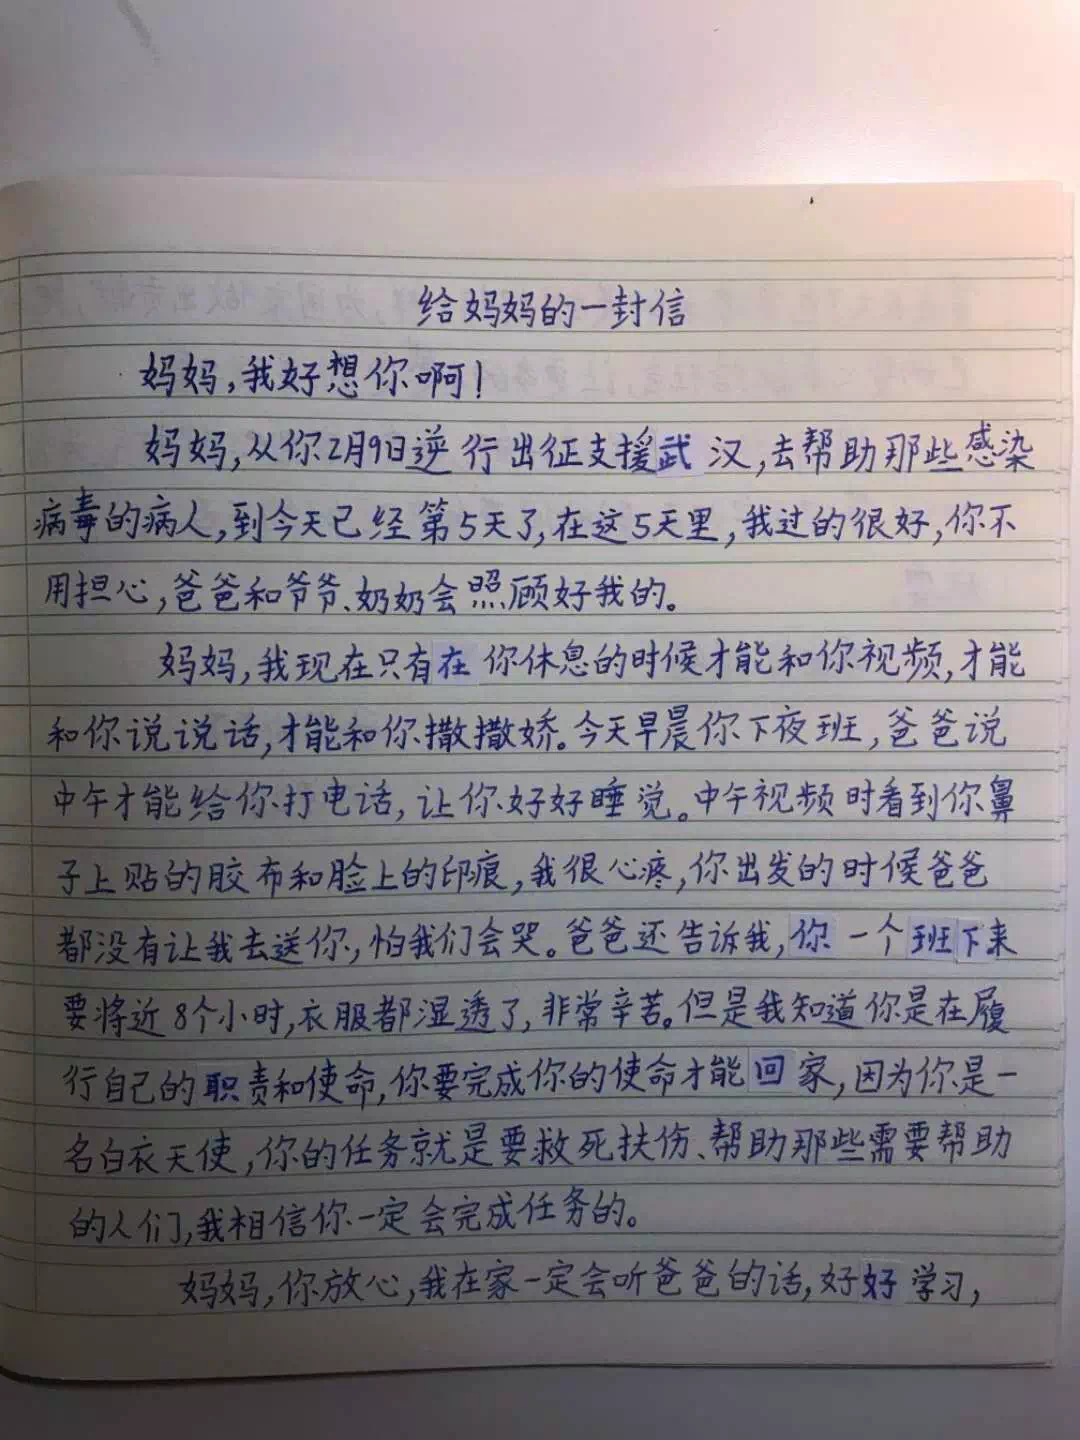 给妈妈的一封信
妈妈,我好想你啊!
妈妈,从你2月9日逆行出征支援武汉,去帮助那些感染
病毒的病人,到今天已经第5天了,在这5天里,我过的很好,你不
用担心,爸爸和爷爷、奶奶会照顾好我的。
妈妈,我现在只有在你休息的时候才能和你视频,才能
和你说说话,才能和你撒撒娇。今天早晨你下夜班,爸爸说
中午才能给你打电话,让你好好睡觉。中午视频时看到你鼻
子上贴的胶布和脸上的印痕,我很心疼,你出发的时候爸爸
都没有让我去送你,怕我们会哭。爸爸还告诉我,你一个班下来
要将近8个小时,衣服都湿透了,非常辛苦。但是我知道你是在履
行自己的职责和使命,你要完成你的使命才能回家,因为你是一
名白衣天使,你的任务就是要救死扶伤、帮助那些需要帮助
的人们,我相信你一定会完成任务的。
妈妈,你放心,我在家一定会听爸爸的话,好好学习,